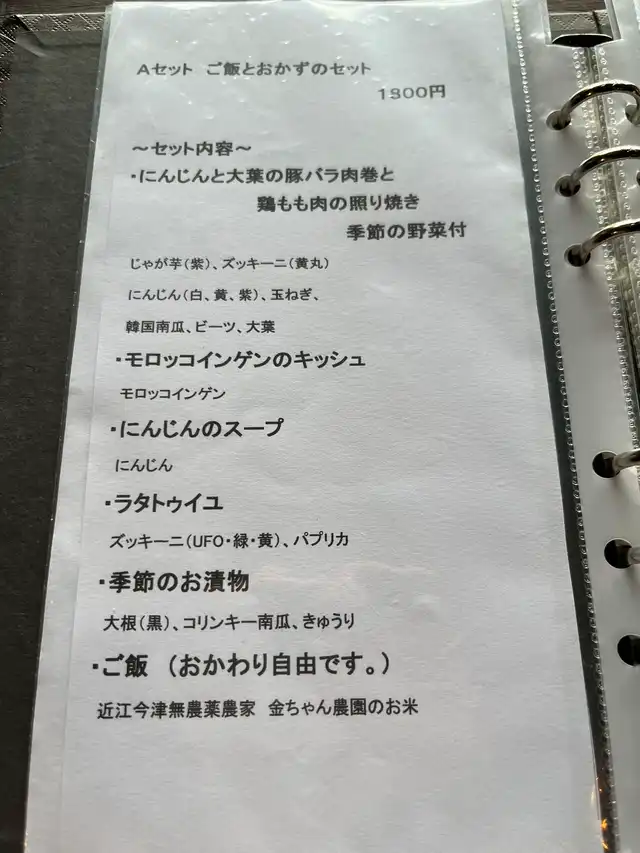 Aセット ご飯とおかずのセット
1800円
～セット内容～
・にんじんと大葉の豚バラ肉巻と
鶏もも肉の照り焼き
季節の野菜付
じゃが芋(紫)、ズッキーニ(黄丸)
にんじん(白、黄、紫)、玉ねぎ、
韓国南瓜、ビーツ、大葉
・モロッコインゲンのキッシュ
モロッコインゲン
・にんじんのスープ
にんじん
・ラタトゥイユ
ズッキーニ(UFO・緑・黄)、パプリカ
・季節のお漬物
大根(黒)、コリンキー南瓜、きゅうり
・ご飯 (おかわり自由です。)
近江今津無農薬農家 金ちゃん農園のお米